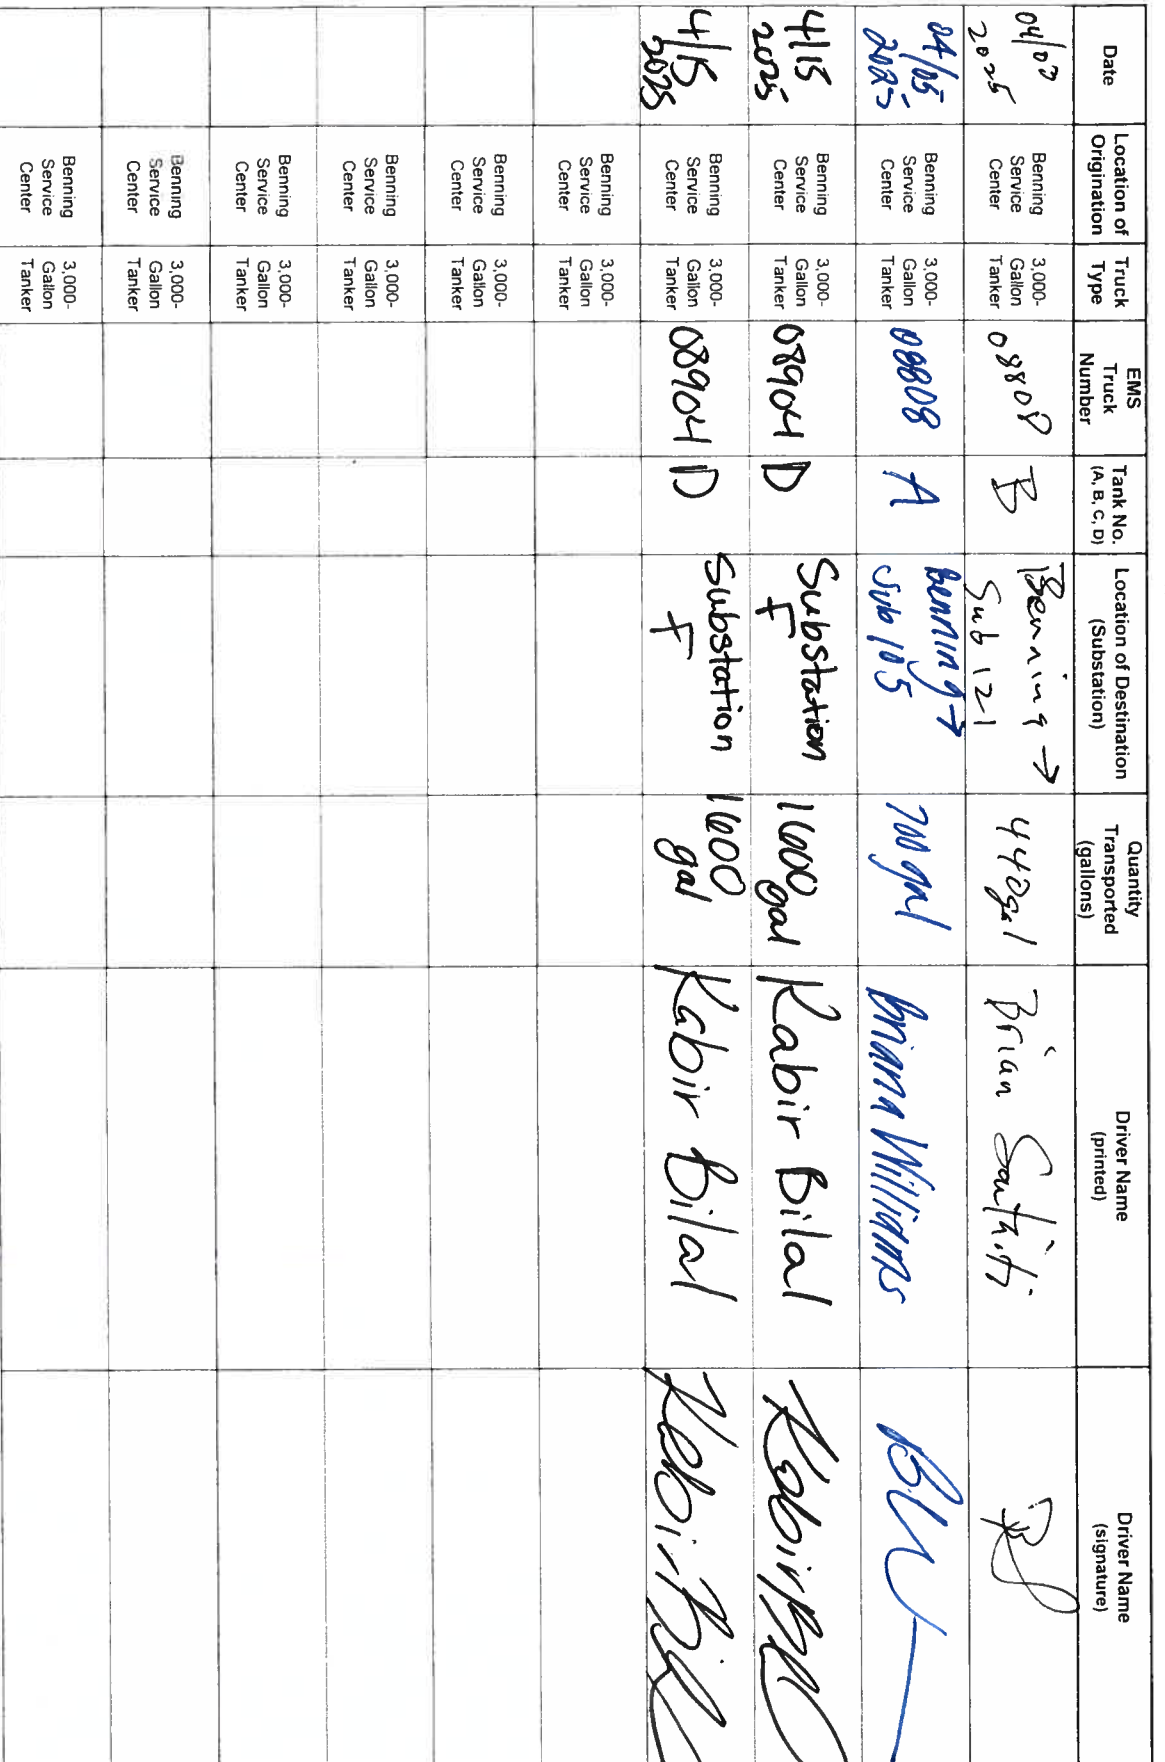 Date
Location of
Origination
Truck
Type
EMS
Truck
Number
Tank No.
(A, B, C, D)
Location of Destination
(Substation)
Quantity
Transported
(gallons)
Driver Name
(printed)
Driver Name
(signature)
2025
Benning
Service
Center
3,000-
Gallon
Tanker
08808
B
Benning →
Sub 121
440gal
Brian
04/05
2025
Benning
Service
Center
3,000-
Gallon
Tanker
08808
A
Benning →
Sub 105
700 gal
Briana Williams
BW
4/15
2025
Benning
Service
Center
3,000-
Gallon
Tanker
08904
D
Substation
F
1600
gal
Kabir Bilal
4/15
2025
Benning
Service
Center
3,000-
Gallon
Tanker
08904
D
Substation
F
1600
gal
Kabir Bilal
Benning
Service
Center
3,000-
Gallon
Tanker
Benning
Service
Center
3,000-
Gallon
Tanker
Benning
Service
Center
3,000-
Gallon
Tanker
Benning
Service
Center
3,000-
Gallon
Tanker
Benning
Service
Center
3,000-
Gallon
Tanker
Benning
Service
Center
3,000-
Gallon
Tanker